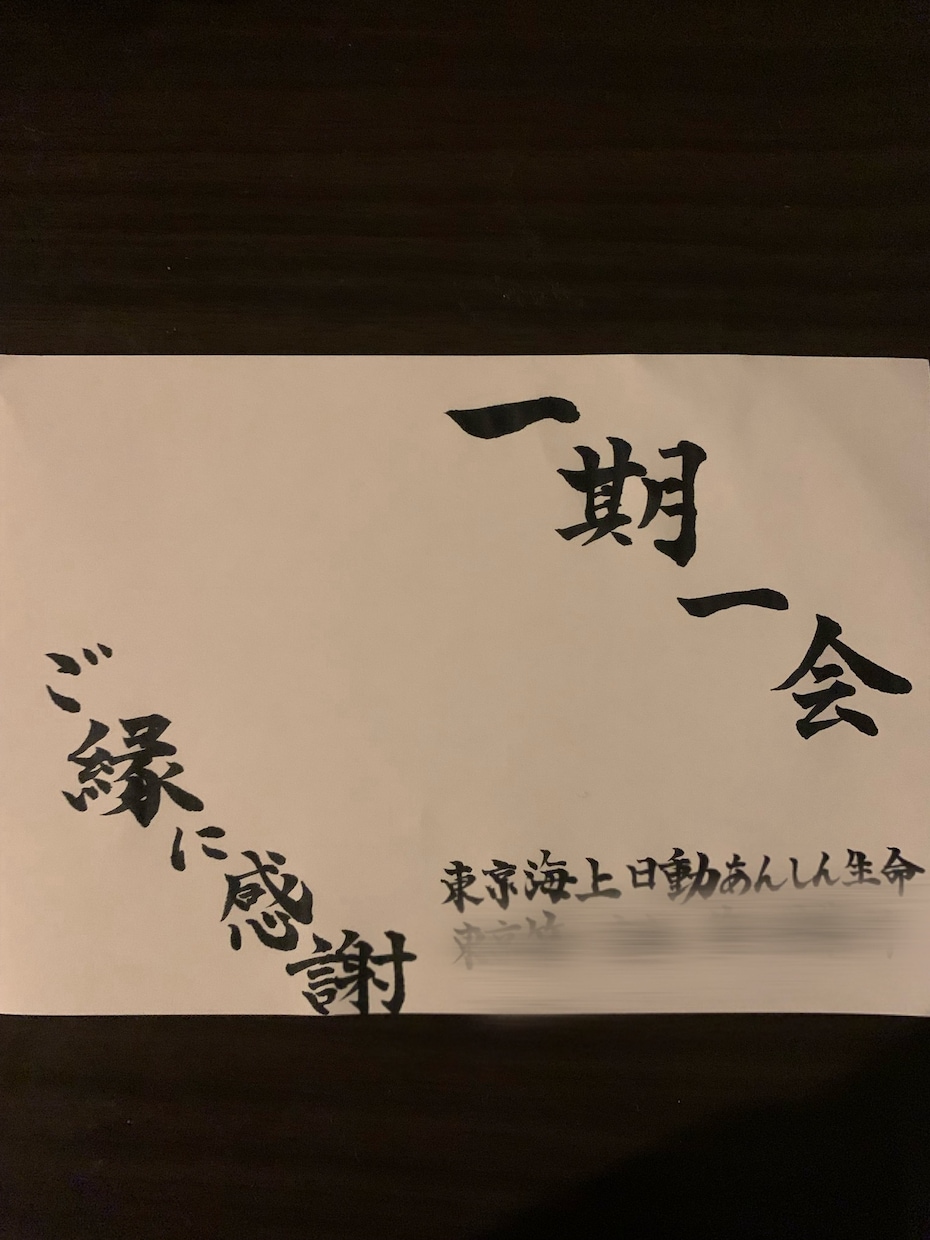 一期一会
ご縁に感謝
東京海上日動あんしん生命